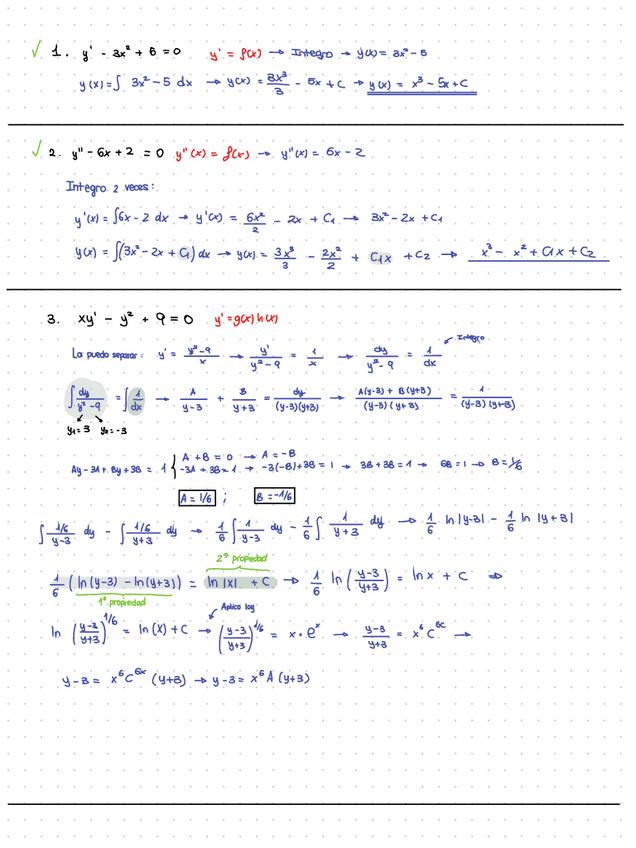 √ 1. y' - 3x² + 5 = 0 y' = f(x) → Integro → y'(x) = 3x² - 5
y(x) = ∫ 3x² - 5 dx → y(x) = 3x³/3 - 5x + C → y(x) = x³ - 5x + C
√ 2. y'' - 6x + 2 = 0 y''(x) = f(x) → y''(x) = 6x - 2
Integro 2 veces:
y'(x) = ∫6x - 2 dx → y'(x) = 6x²/2 - 2x + C₁ → 3x² - 2x + C₁
y(x) = ∫(3x² - 2x + C₁) dx → y(x) = 3x³/3 - 2x²/2 + C₁x + C₂ → x³ - x² + C₁x + C₂
3. xy' - y² + 9 = 0 y' = g(x) h(x)
Integro
La puedo separar: y' = y²-9/x → y'/y²-9 = 1/x → dy/y²-9 = 1/dx
∫ dy/y²-9 = ∫ 1/dx → A/y-3 + B/y+3 = dy/(y-3)(y+3) → A(y-3) + B(y+3)/(y-3)(y+3) = 1/(y-3)(y+3)
y₁ = 3 y₂ = -3
Ay - 3A + By + 3B = 1 { A + B = 0 → A = -B
-3A + 3B = 1 → -3(-B) + 3B = 1 → 3B + 3B = 1 → 6B = 1 → B = 1/6
A = 1/6 ; B = -1/6
∫ 1/6/y-3 dy - ∫ 1/6/y+3 dy → 1/6 ∫ 1/y-3 dy - 1/6 ∫ 1/y+3 dy → 1/6 ln |y-3| - 1/6 ln |y+3|
2ª propiedad
1/6 (ln (y-3) - ln (y+3)) = ln |x| + C → 1/6 ln (y-3/y+3) = ln x + C ⇒
1ª propiedad
Aplico log
ln (y-3/y+3)^1/6 = ln (x) + C → (y-3/y+3)^1/6 = x · e^x → y-3/y+3 = x⁶ C^6C →
y - 3 = x⁶ C^6x (y+3) → y - 3 = x⁶ A (y+3)